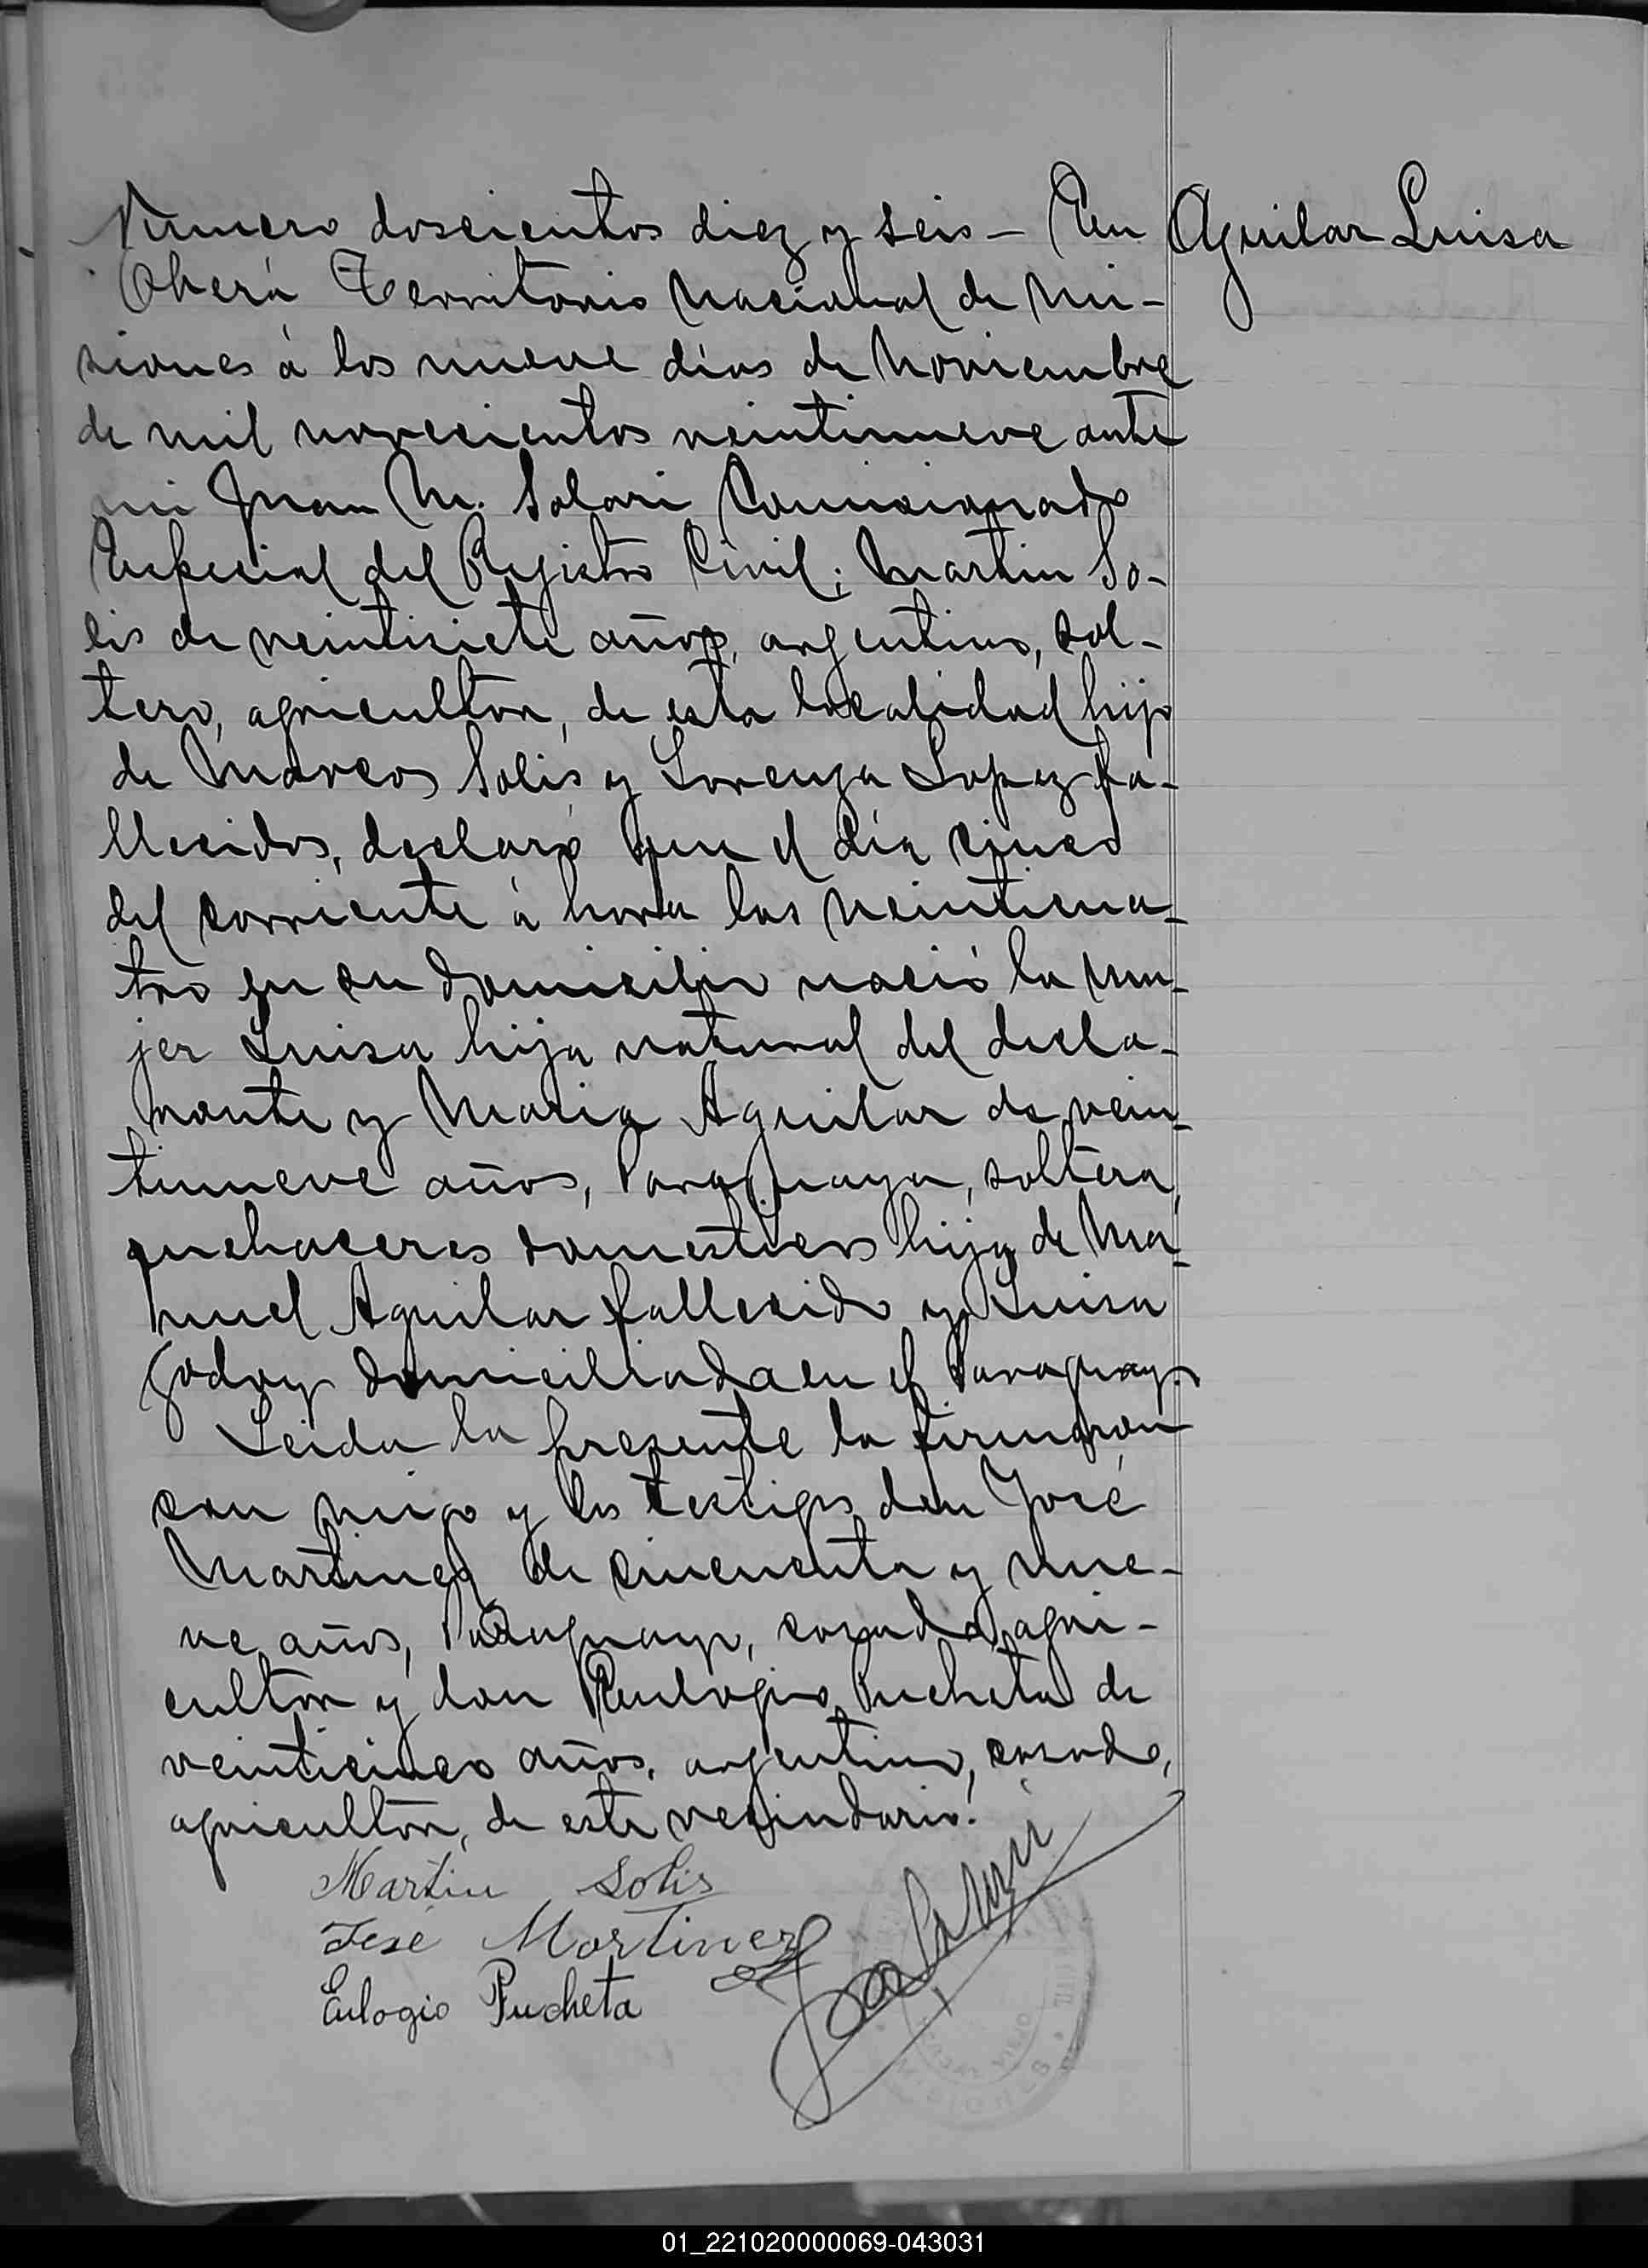 Numero doscientos diez y seis - En
Aguilar Luisa
Oberá Territorio Nacional de Mi-
siones á los nueve días de Noviembre
de mil novecientos veintinueve ante
mi Juan M. Solari Comisionado
Especial del Registro Civil; Martin So-
lis de veintisiete años, argentino, sol-
tero, agricultor, de esta localidad hijo
de Marcos Solis y Lorenza Lopez fa-
llecidos, declaró que el día cinco
del corriente á hora las veinticua-
tro en su domicilio nació la mu-
jer Luisa hija natural del decla-
rante y Maria Aguilar de vein-
tinueve años, Paraguaya, soltera,
quehaceres domesticos hija de Ma-
nuel Aguilar fallecido y Luisa
Godoy domiciliada en el Paraguay.
Leida la presente la firmaron
con migo y los testigos don José
Martinez de cincuenta y nue-
ve años, Paraguayo, casado, agri-
cultor y don Eulogio Pucheta de
veinticinco años, argentino, casado,
agricultor, de este vecindario.
Martin Solis
José Martinez
Eulogio Pucheta
MISIONES
01_221020000069-043031